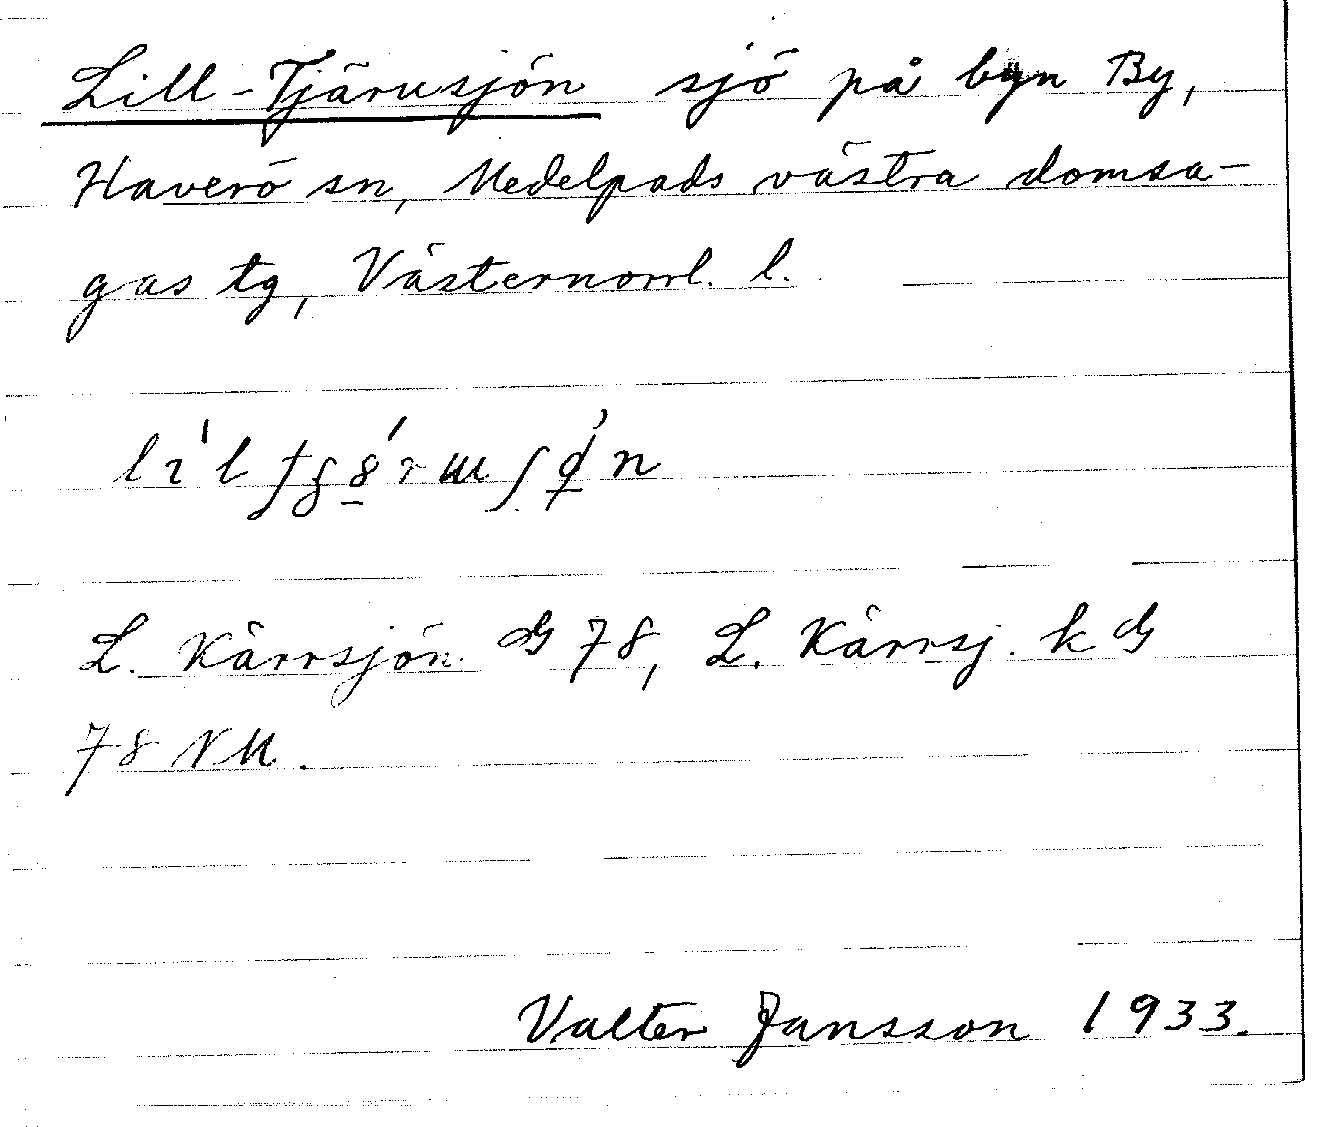 Lill-Tjärusjön sjö på byn By,
Haverö sn, Medelpads västra domsa-
gas tg, Västernorrl. l.
L. Kärrsjön G 78, L. Kärrsj. k G
78 NM.
Valter Jansson 1933.